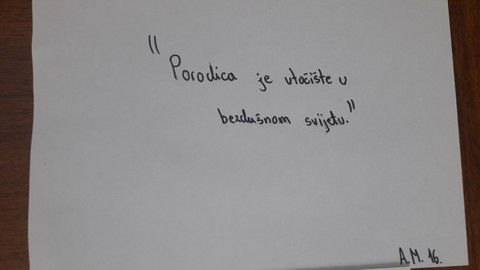 "Porodica je utočište u
bezdušnom svijetu."
A.M. 16.